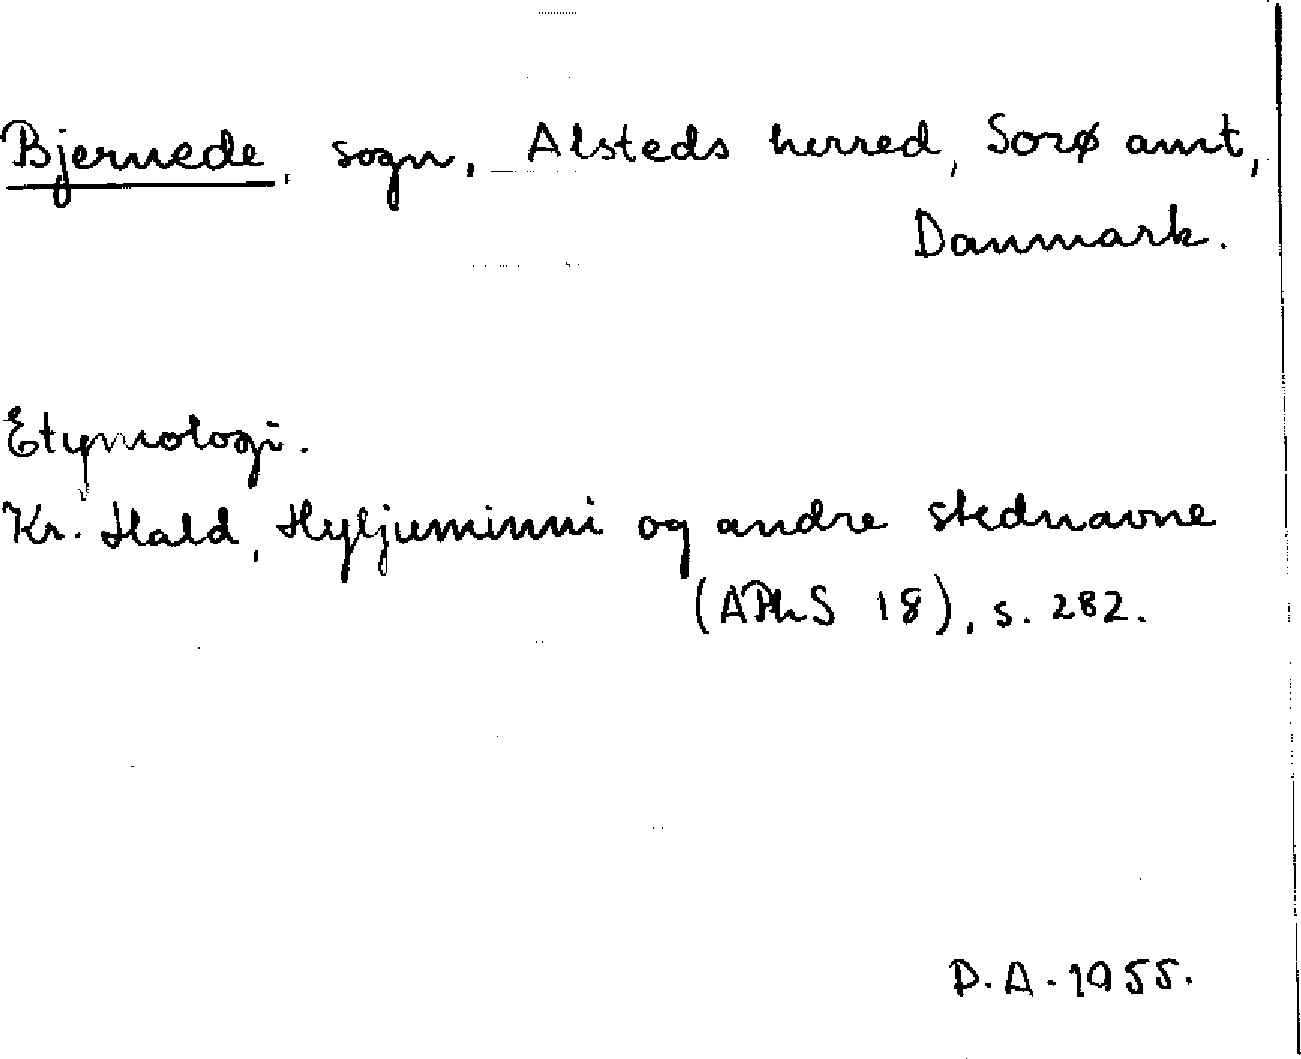 Bjernede, sogn, Alsteds herred, Sorø amt,
Danmark.
Etymologi.
Kr. Hald, Hyljuminni og andre stednavne
(APhS 18), s. 282.
D.A. 1955.